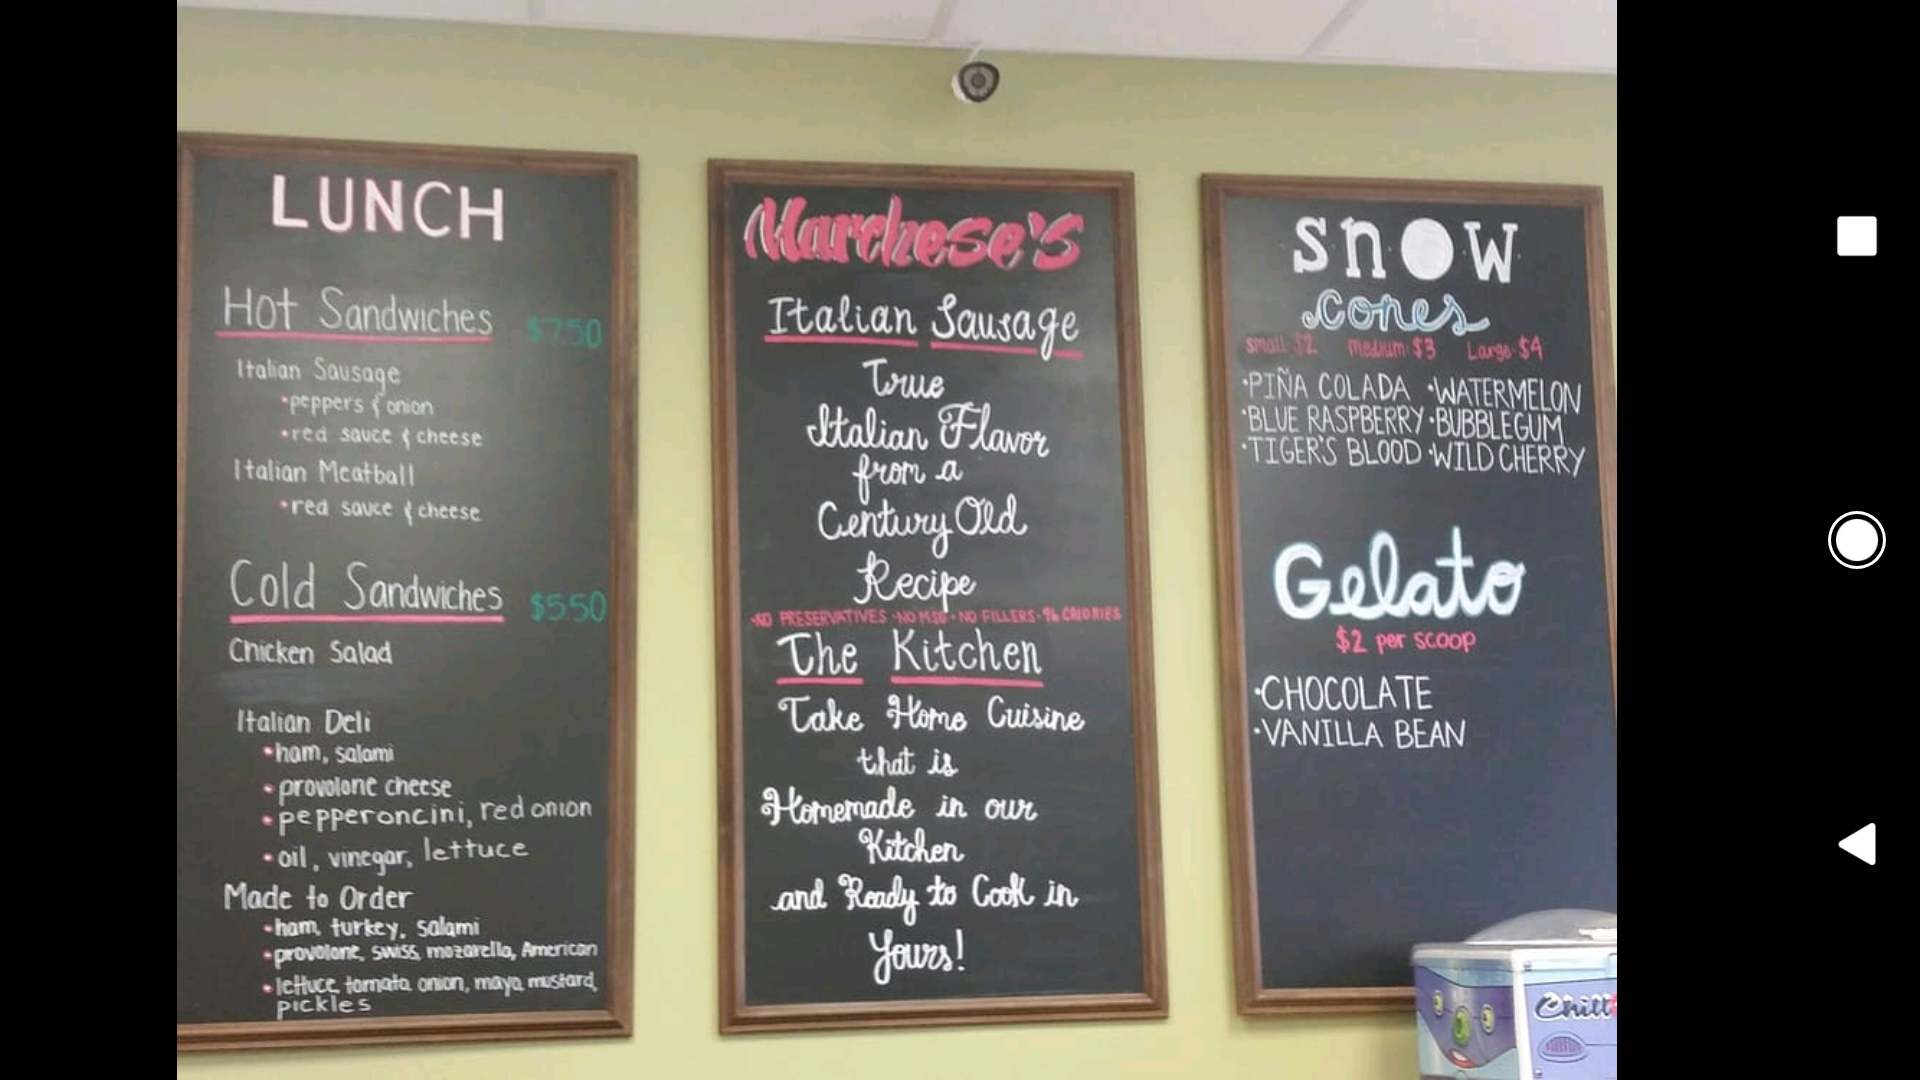 LUNCH
Hot Sandwiches $7.50
Italian Sausage
•peppers & onion
•red sauce & cheese
Italian Meatball
•red sauce & cheese
Cold Sandwiches $5.50
Chicken Salad
Italian Deli
•ham, salami
•provolone cheese
•pepperoncini, red onion
•oil, vinegar, lettuce
Made to Order
•ham, turkey, salami
•provolone, swiss, mozarella, American
•lettuce, tomato, onion, mayo, mustard,
pickles
Marchese's
Italian Sausage
True
Italian Flavor
from a
Century Old
Recipe
•NO PRESERVATIVES •NO MSG •NO FILLERS •96 CALORIES
The Kitchen
Take Home Cuisine
that is
Homemade in our
Kitchen
and Ready to Cook in
Yours!
SNOW
cones
small: $2 medium: $3 Large: $4
•PIÑA COLADA •WATERMELON
•BLUE RASPBERRY •BUBBLEGUM
•TIGER'S BLOOD •WILD CHERRY
Gelato
$2 per scoop
•CHOCOLATE
•VANILLA BEAN
Chill